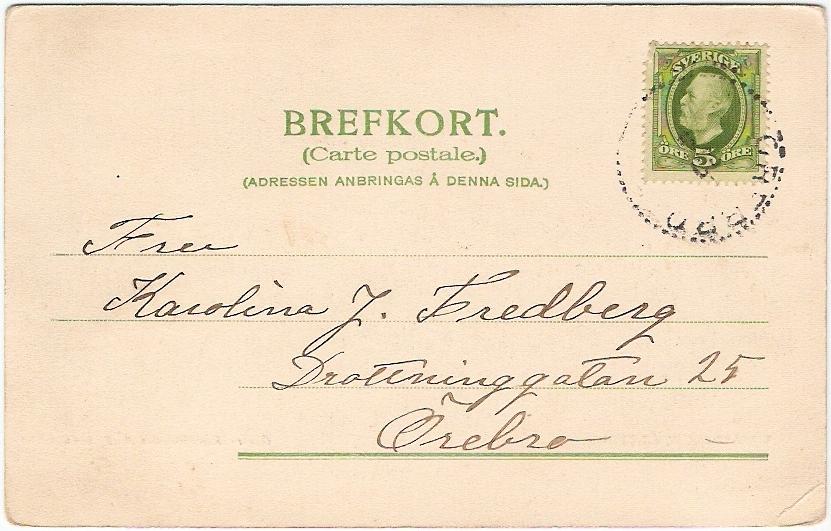 SVERIGE
ÖRE 5 ÖRE
BREFKORT.
(Carte postale.)
(ADRESSEN ANBRINGAS Å DENNA SIDA.)
Fru
Karolina J. Fredberg
Drottninggatan 25
Örebro